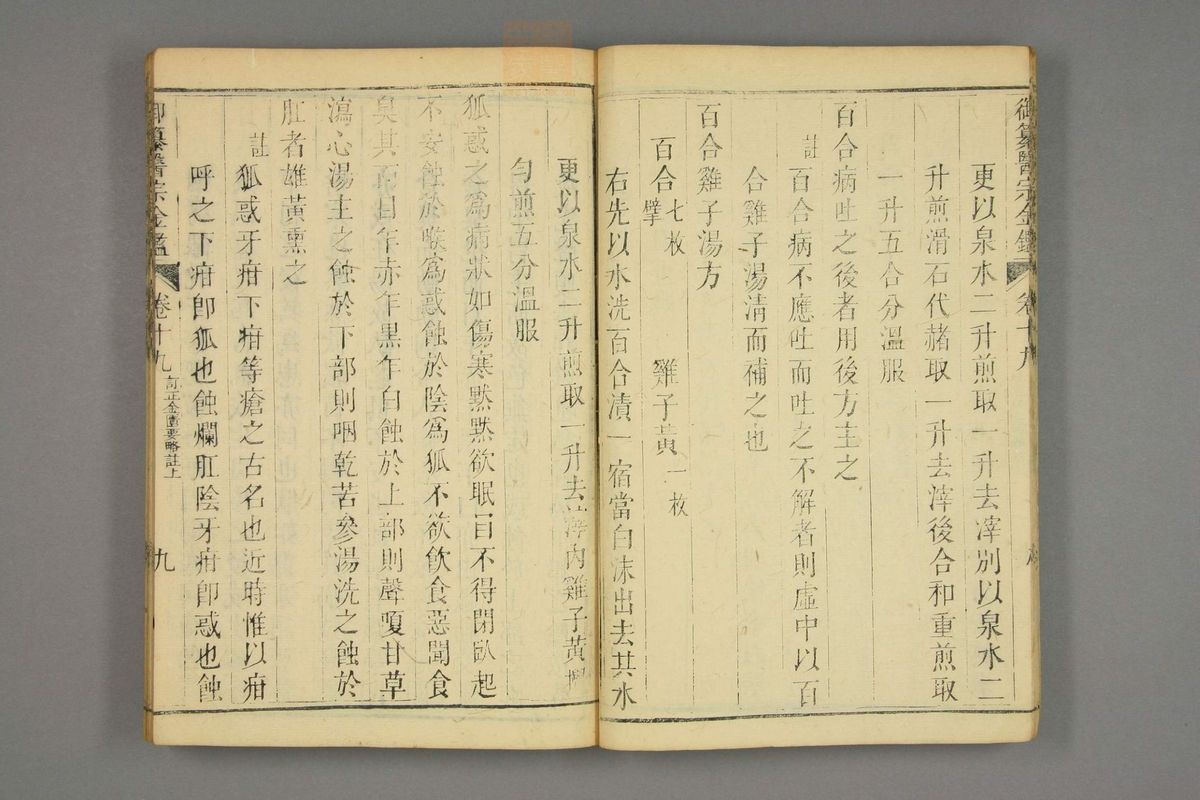 御纂醫宗金鑑 卷十九
更以泉水二升煎取一升去滓別以泉水二
升煎滑石代赭取一升去滓後合和重煎取
一升五合分溫服
百合病吐之後者用後方主之
註 百合病不應吐而吐之不解者則虛中以百
合雞子湯清而補之也
百合雞子湯方
百合七枚擘 雞子黃一枚
右先以水洗百合漬一宿當白沫出去其水
更以泉水二升煎取一升去滓內雞子黃攪
勻煎五分溫服
狐惑之為病狀如傷寒默默欲眠目不得閉臥起
不安蝕於喉為惑蝕於陰為狐不欲飲食惡聞食
臭其面目乍赤乍黑乍白蝕於上部則聲嗄甘草
瀉心湯主之蝕於下部則咽乾苦參湯洗之蝕於
肛者雄黃熏之
註 狐惑牙疳下疳等瘡之古名也近時惟以疳
呼之下疳卽狐也蝕爛肛陰牙疳卽惑也蝕
御纂醫宗金鑑 卷十九 訂正金匱要略註上 九